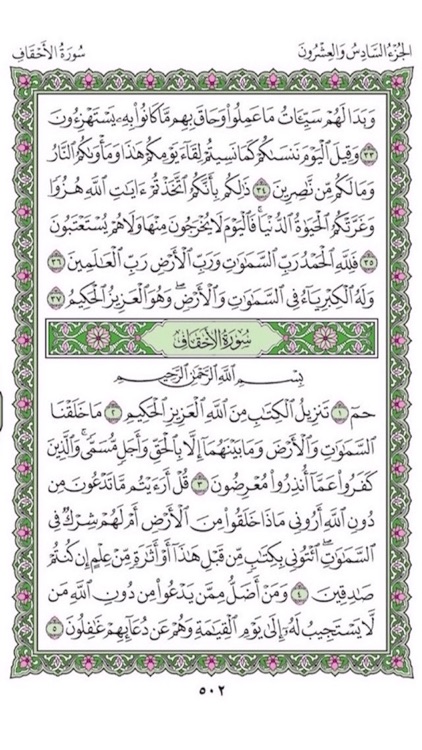 الجزء السادس والعشرون
سورة الأحقاف
وَبَدَا لَهُمْ سَيِّـَٔاتُ مَا عَمِلُوا۟ وَحَاقَ بِهِم مَّا كَانُوا۟ بِهِۦ يَسْتَهْزِءُونَ
٣٣ وَقِيلَ ٱلْيَوْمَ نَنسَىٰكُمْ كَمَا نَسِيتُمْ لِقَآءَ يَوْمِكُمْ هَٰذَا وَمَأْوَىٰكُمُ ٱلنَّارُ
وَمَا لَكُم مِّن نَّٰصِرِينَ ٣٤ ذَٰلِكُم بِأَنَّكُمُ ٱتَّخَذْتُمْ ءَايَٰتِ ٱللَّهِ هُزُوًا
وَغَرَّتْكُمُ ٱلْحَيَوٰةُ ٱلدُّنْيَا ۚ فَٱلْيَوْمَ لَا يُخْرَجُونَ مِنْهَا وَلَا هُمْ يُسْتَعْتَبُونَ
٣٥ فَلِلَّهِ ٱلْحَمْدُ رَبِّ ٱلسَّمَٰوَٰتِ وَرَبِّ ٱلْأَرْضِ رَبِّ ٱلْعَٰلَمِينَ ٣٦
وَلَهُ ٱلْكِبْرِيَآءُ فِى ٱلسَّمَٰوَٰتِ وَٱلْأَرْضِ ۖ وَهُوَ ٱلْعَزِيزُ ٱلْحَكِيمُ ٣٧
سورة الأحقاف
بِسْمِ ٱللَّهِ ٱلرَّحْمَٰنِ ٱلرَّحِيمِ
حمٓ ١ تَنزِيلُ ٱلْكِتَٰبِ مِنَ ٱللَّهِ ٱلْعَزِيزِ ٱلْحَكِيمِ ٢ مَا خَلَقْنَا
ٱلسَّمَٰوَٰتِ وَٱلْأَرْضَ وَمَا بَيْنَهُمَآ إِلَّا بِٱلْحَقِّ وَأَجَلٍ مُّسَمًّى ۚ وَٱلَّذِينَ
كَفَرُوا۟ عَمَّآ أُنذِرُوا۟ مُعْرِضُونَ ٣ قُلْ أَرَءَيْتُم مَّا تَدْعُونَ مِن
دُونِ ٱللَّهِ أَرُونِى مَاذَا خَلَقُوا۟ مِنَ ٱلْأَرْضِ أَمْ لَهُمْ شِرْكٌ فِى
ٱلسَّمَٰوَٰتِ ۖ ٱئْتُونِى بِكِتَٰبٍ مِّن قَبْلِ هَٰذَآ أَوْ أَثَٰرَةٍ مِّنْ عِلْمٍ إِن كُنتُمْ
صَٰدِقِينَ ٤ وَمَنْ أَضَلُّ مِمَّن يَدْعُوا۟ مِن دُونِ ٱللَّهِ مَن
لَّا يَسْتَجِيبُ لَهُۥٓ إِلَىٰ يَوْمِ ٱلْقِيَٰمَةِ وَهُمْ عَن دُعَآئِهِمْ غَٰفِلُونَ ٥
٥٠٢